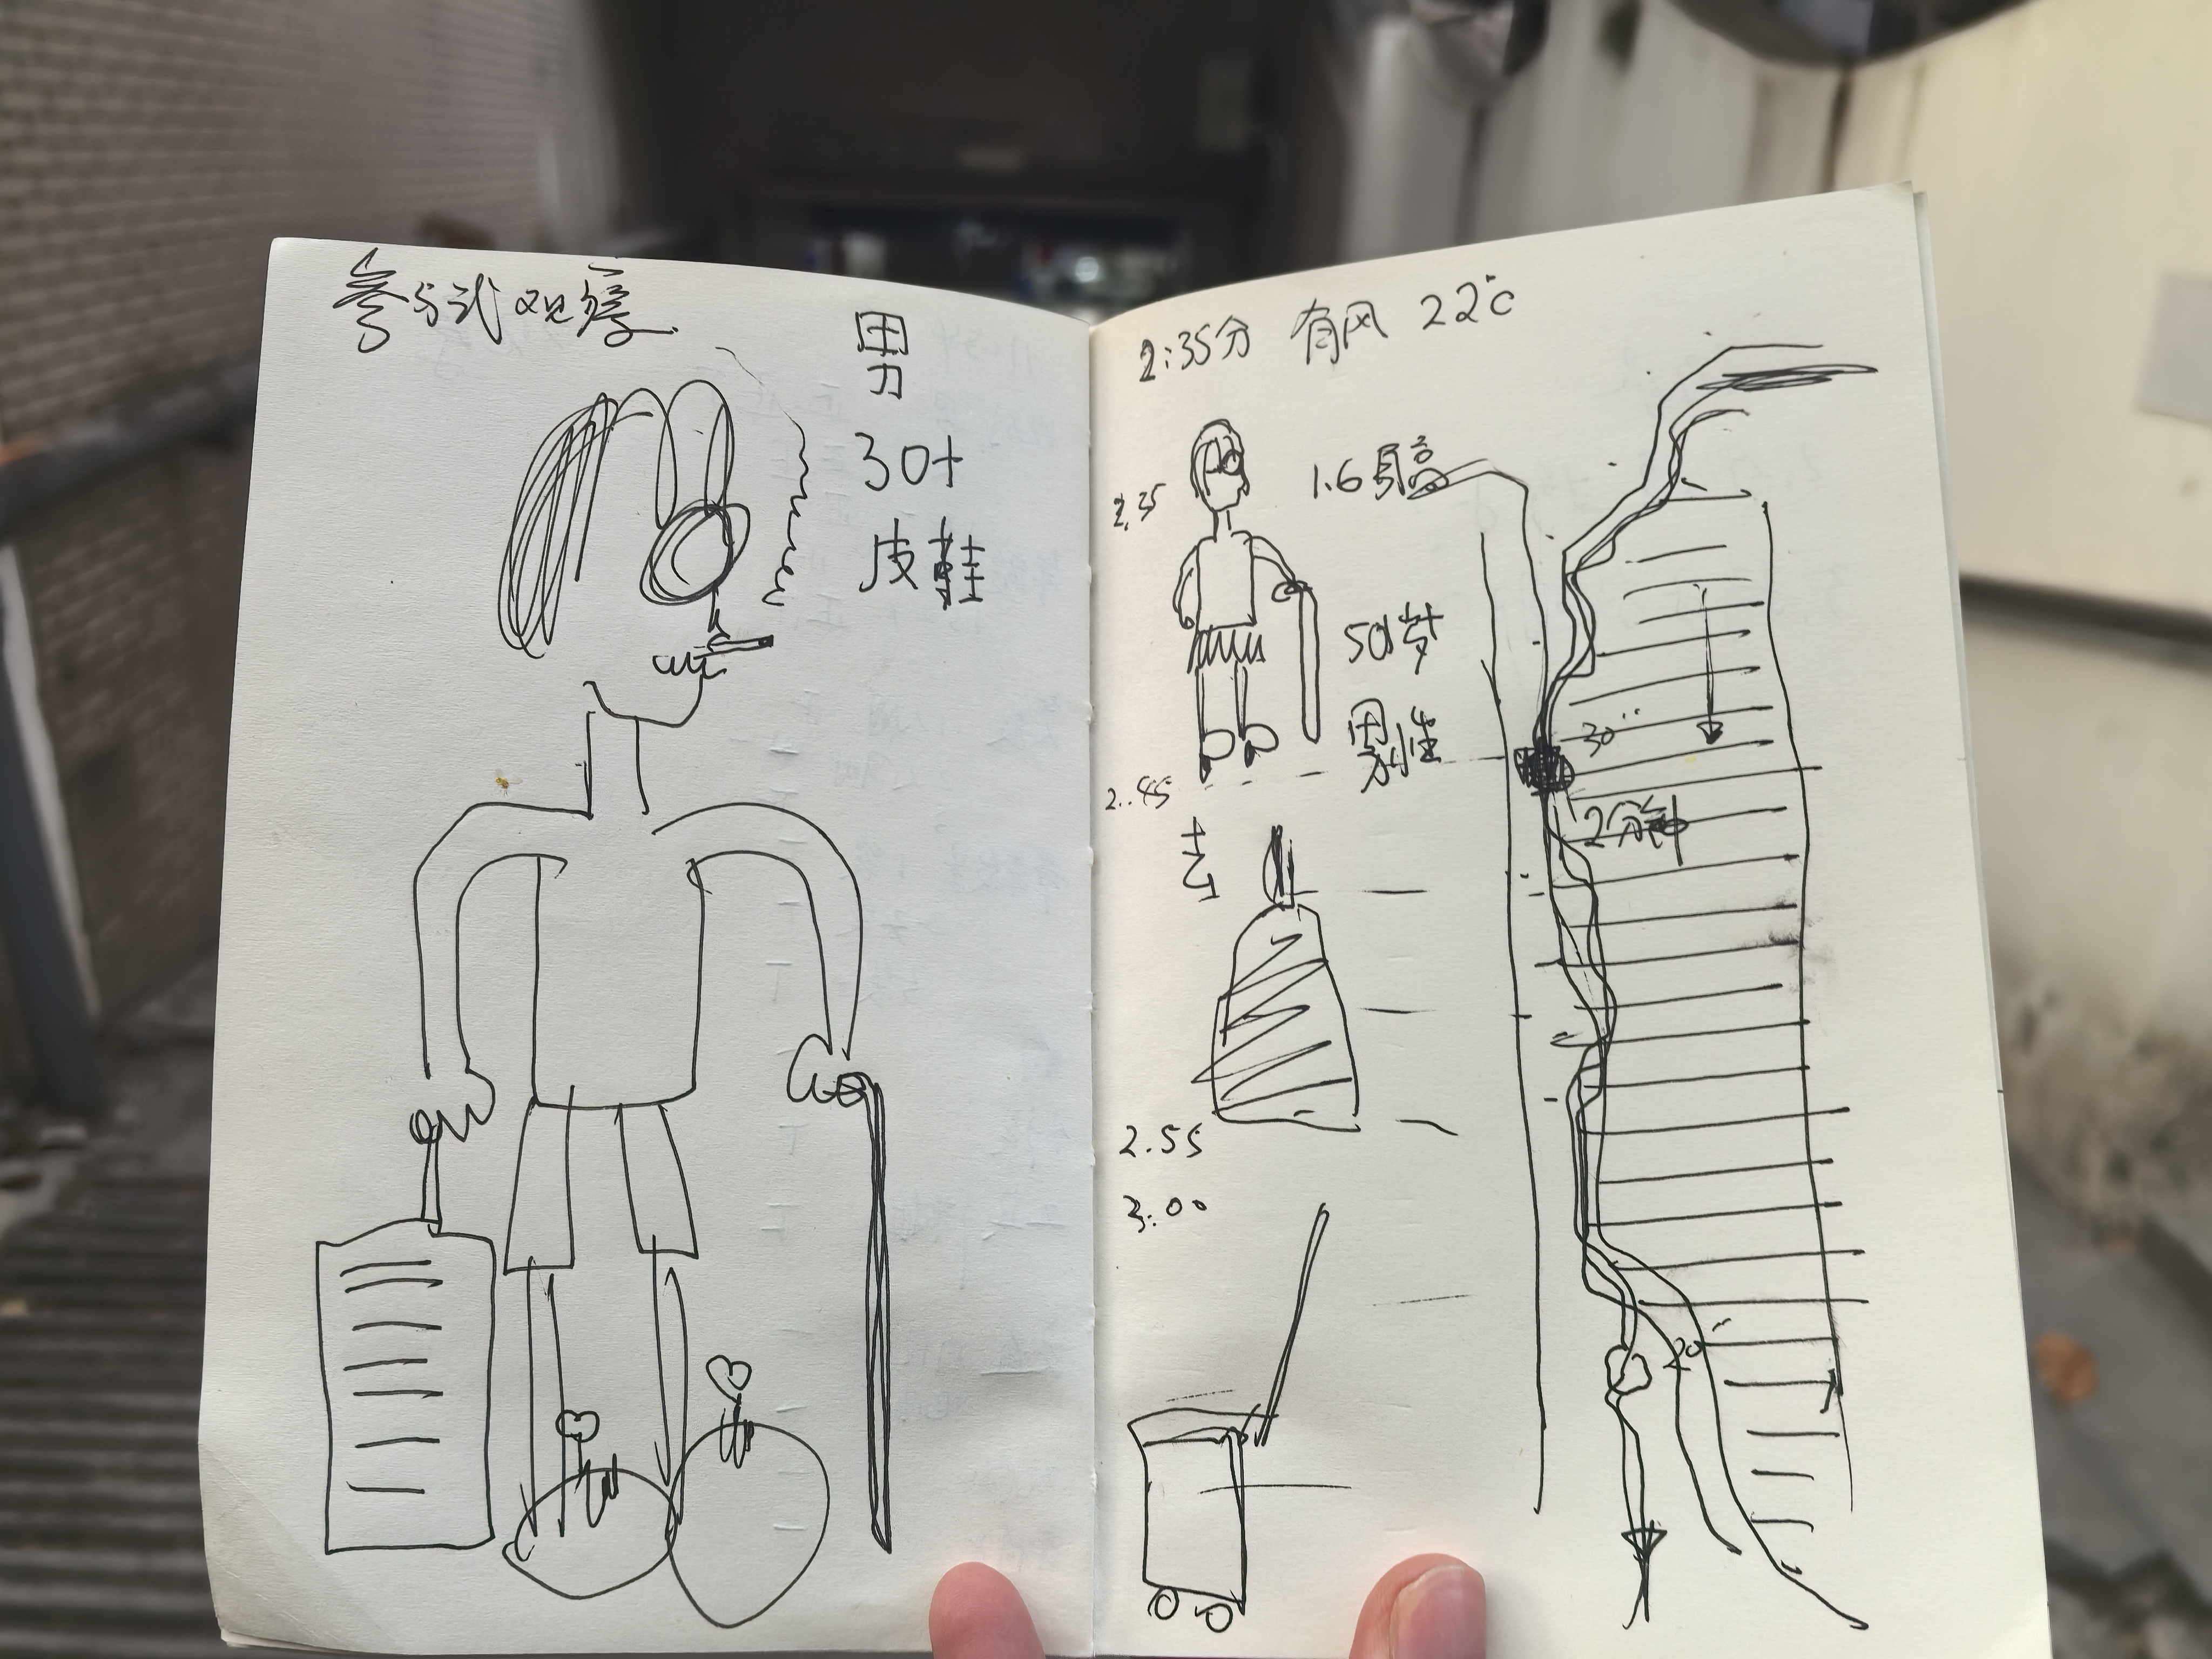 参与式观察
男
30+
皮鞋
2:35分 有风 22℃
2.35
1.6身高
50岁
男性
2..45
30''
2分钟
2.55
3:00
20''